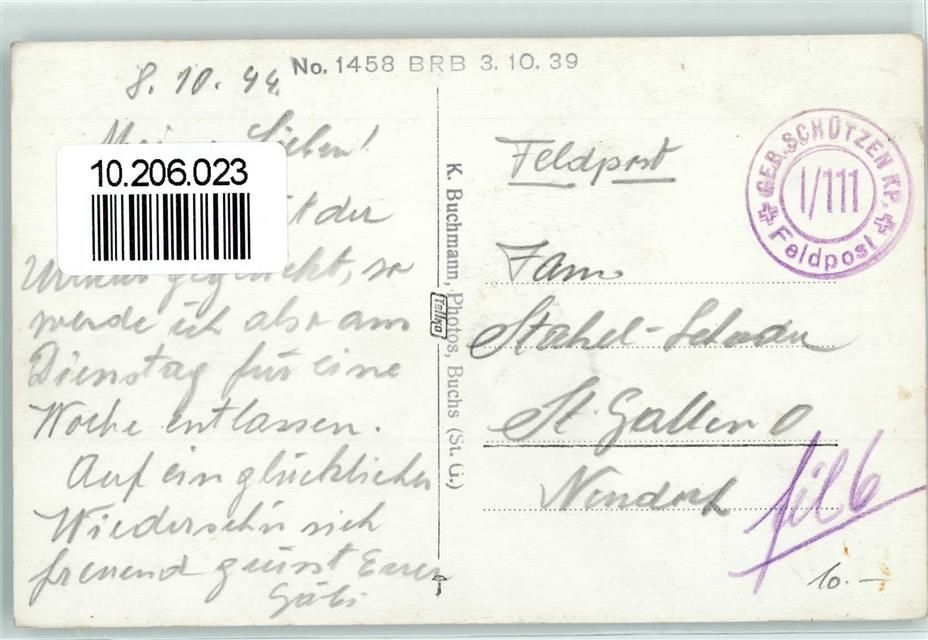 No. 1458 BRB 3.10.39
8.10.44.
Lieben!
10.206.023
it der
Urlaub geglückt, so
werde ich also am
Dienstag für eine
Woche entlassen.
Auf ein glückliches
Wiedersehn sich
freuend grüsst Euer
Göbi
K. Buchmann, Photos, Buchs (St. G.)
Tellko
Feldpost
Fam
Stahel-
St. Gallen O
Neudorf
GEB. SCHÜTZEN KP.
I/111
Feldpost
10.-